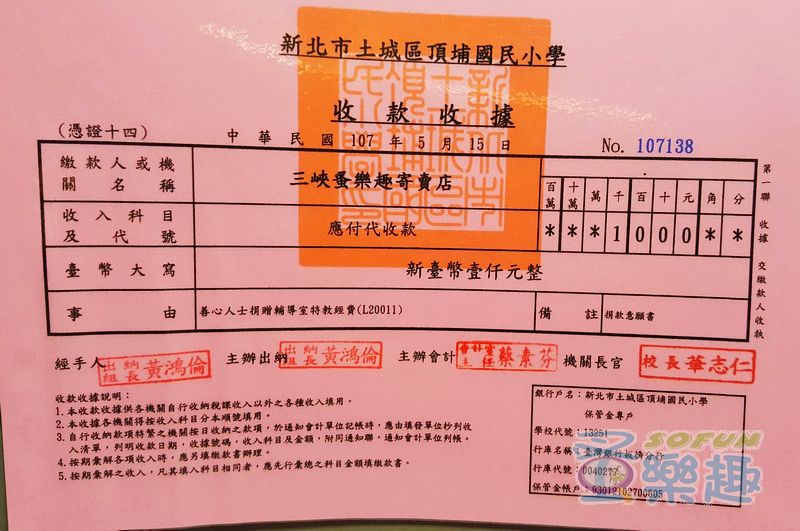 新北市土城區頂埔國民小學
收款收據
(憑證十四)
中華民國 107 年 5 月 15 日
No. 107138
繳款人或機關名稱
三峽蚤樂趣寄賣店
百萬 十萬 萬 千 百 十 元 角 分
收入科目及代號
應付代收款
* * * 1 0 0 0 * *
臺幣大寫
新臺幣壹仟元整
事由
善心人士捐贈輔導室特教經費(L20011)
備註
捐款意願書
第一聯 收據 交繳款人收執
經手人 出納組長 黃鴻倫
主辦出納 出納組長 黃鴻倫
主辦會計 會計室主任 蔡素芬
機關長官 校長 華志仁
收款收據說明：
1.本收款收據供各機關自行收納稅課收入以外之各種收入填用。
2.本收據各機關得按收入科目分本順號填用。
3.自行收納款項特繁之機關按日收納之款項，於通知會計單位記帳時，應由填發單位抄列收
入清單，列明收款日期，收據號碼，收入科目及金額，附同通知聯，通知會計單位列帳。
4.按期彙解各項收入時，應另填繳款書辦理。
5.按期彙解之收入，凡其填入科目相同者，應先行彙總之科目金額填繳款書。
銀行戶名：新北市土城區頂埔國民小學
保管金專戶
學校代號：13251
行庫名稱：臺灣銀行板橋分行
行庫代號：0040277
保管金帳戶：93012102700605
SOFUN
蚤樂趣